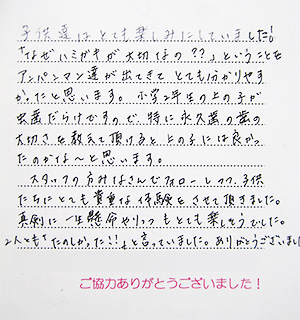 子供達はとても楽しみにしていました！
"なぜハミガキが大切なの？？"ということを
アンパンマン達が出てきて とても分かりやす
かったと思います。小学2年生の上の子が
虫歯だらけですので、特に永久歯の歯の
大切さを教えて頂けると上の子には良かっ
たのかな〜と思います。
スタッフの方みなさんでフォローしつつ、子供
たちにとても貴重な体験をさせて頂きました。
真剣に一生懸命やりつつもとても楽しそうでした。
2人とも"たのしかった！！"と言っていました。ありがとうございました
ご協力ありがとうございました！